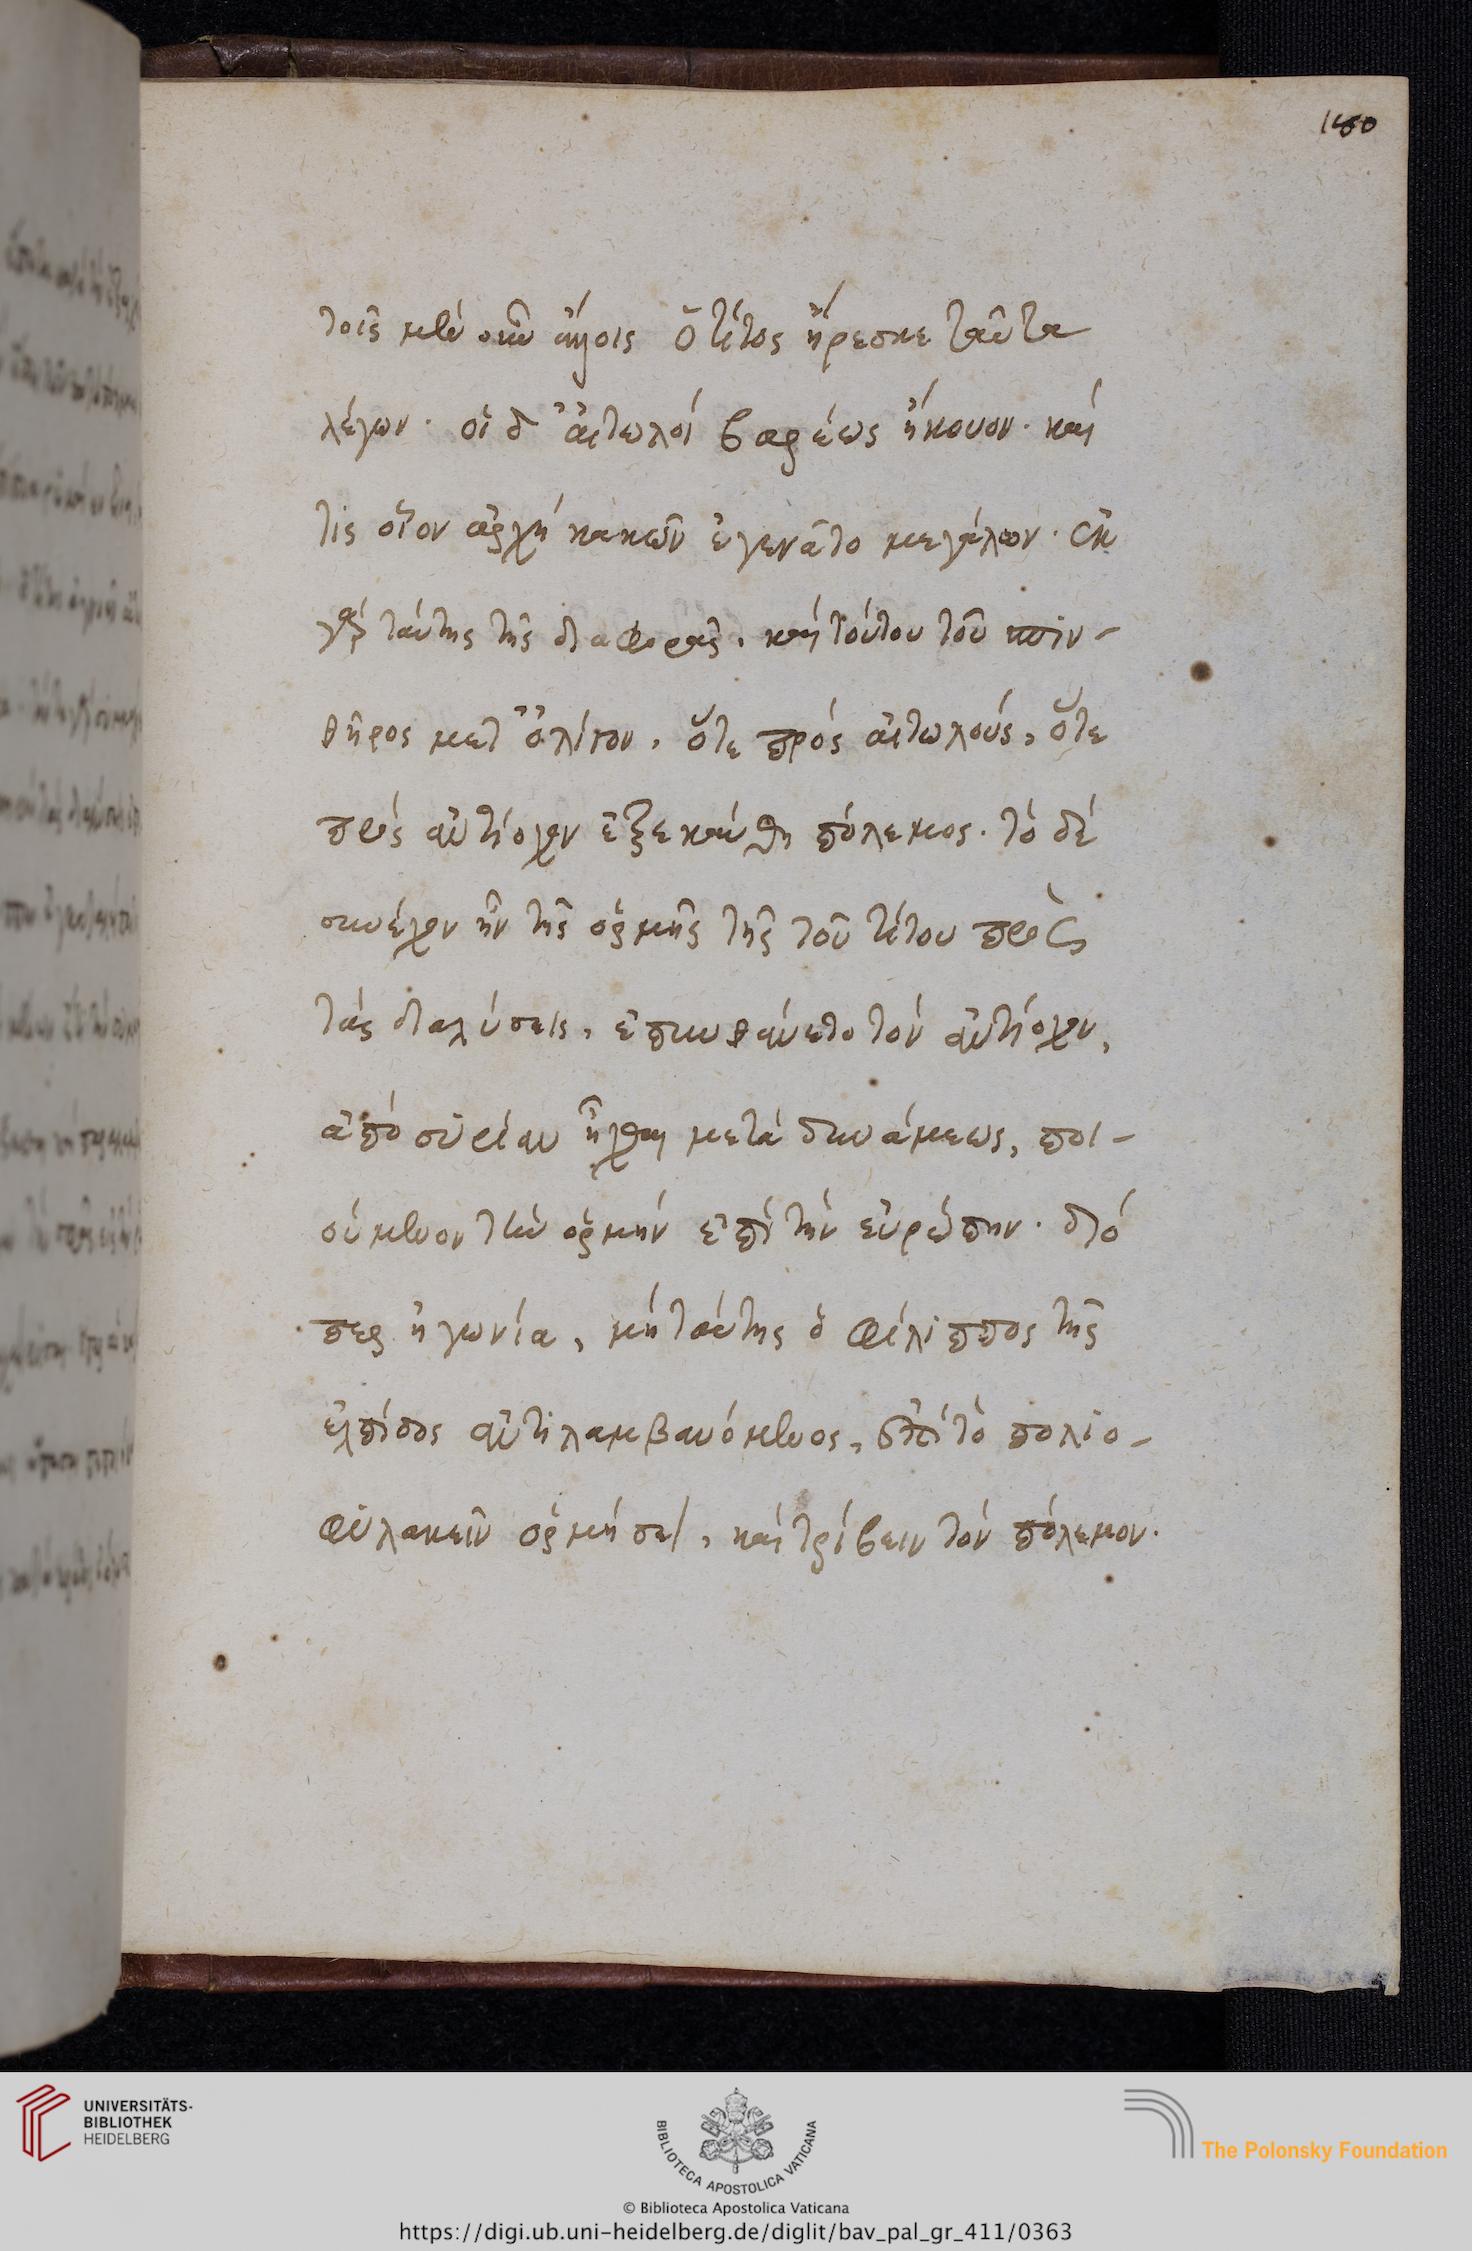 180
τοῖς μὲν οὖν ἄλλοις ὁ τίτος ἤρεσκε ταῦτα
λέγων· οἱ δ' αἰτωλοὶ βαρέως ἤκουον· καί
τις οἷον ἀρχὴ κακῶν ἐγένατο μεγάλων· ἐκ
γὰρ ταύτης τῆς διαφορᾶς, καὶ τούτου τοῦ σπιν-
θῆρος μετ' ὀλίγον, ὅ τε πρὸς αἰτωλούς, ὅ τε
πρὸς ἀντίοχον ἐξεκαύθη πόλεμος. τὸ δὲ
συνέχον ἦν τῆς ὁρμῆς τῆς τοῦ τίτου πρὸς
τὰς διαλύσεις, ἐπυνθάνετο τὸν ἀντίοχον,
ἀπὸ συρίαν ἦχθαι μετὰ δυνάμεως, ποι-
ούμενον τὴν ὁρμὴν ἐπὶ τὴν εὐρώπην. διό
περ ἠγωνία, μὴ ταύτης ὁ φίλιππος τῆς
ἐλπίδος ἀντιλαμβανόμενος, ἐπὶ τὸ πολιο-
φυλακεῖν ὁρμήσει, καὶ τρίβειν τὸν πόλεμον.
UNIVERSITÄTS-
BIBLIOTHEK
HEIDELBERG
BIBLIOTECA APOSTOLICA VATICANA
© Biblioteca Apostolica Vaticana
The Polonsky Foundation
https://digi.ub.uni-heidelberg.de/diglit/bav_pal_gr_411/0363